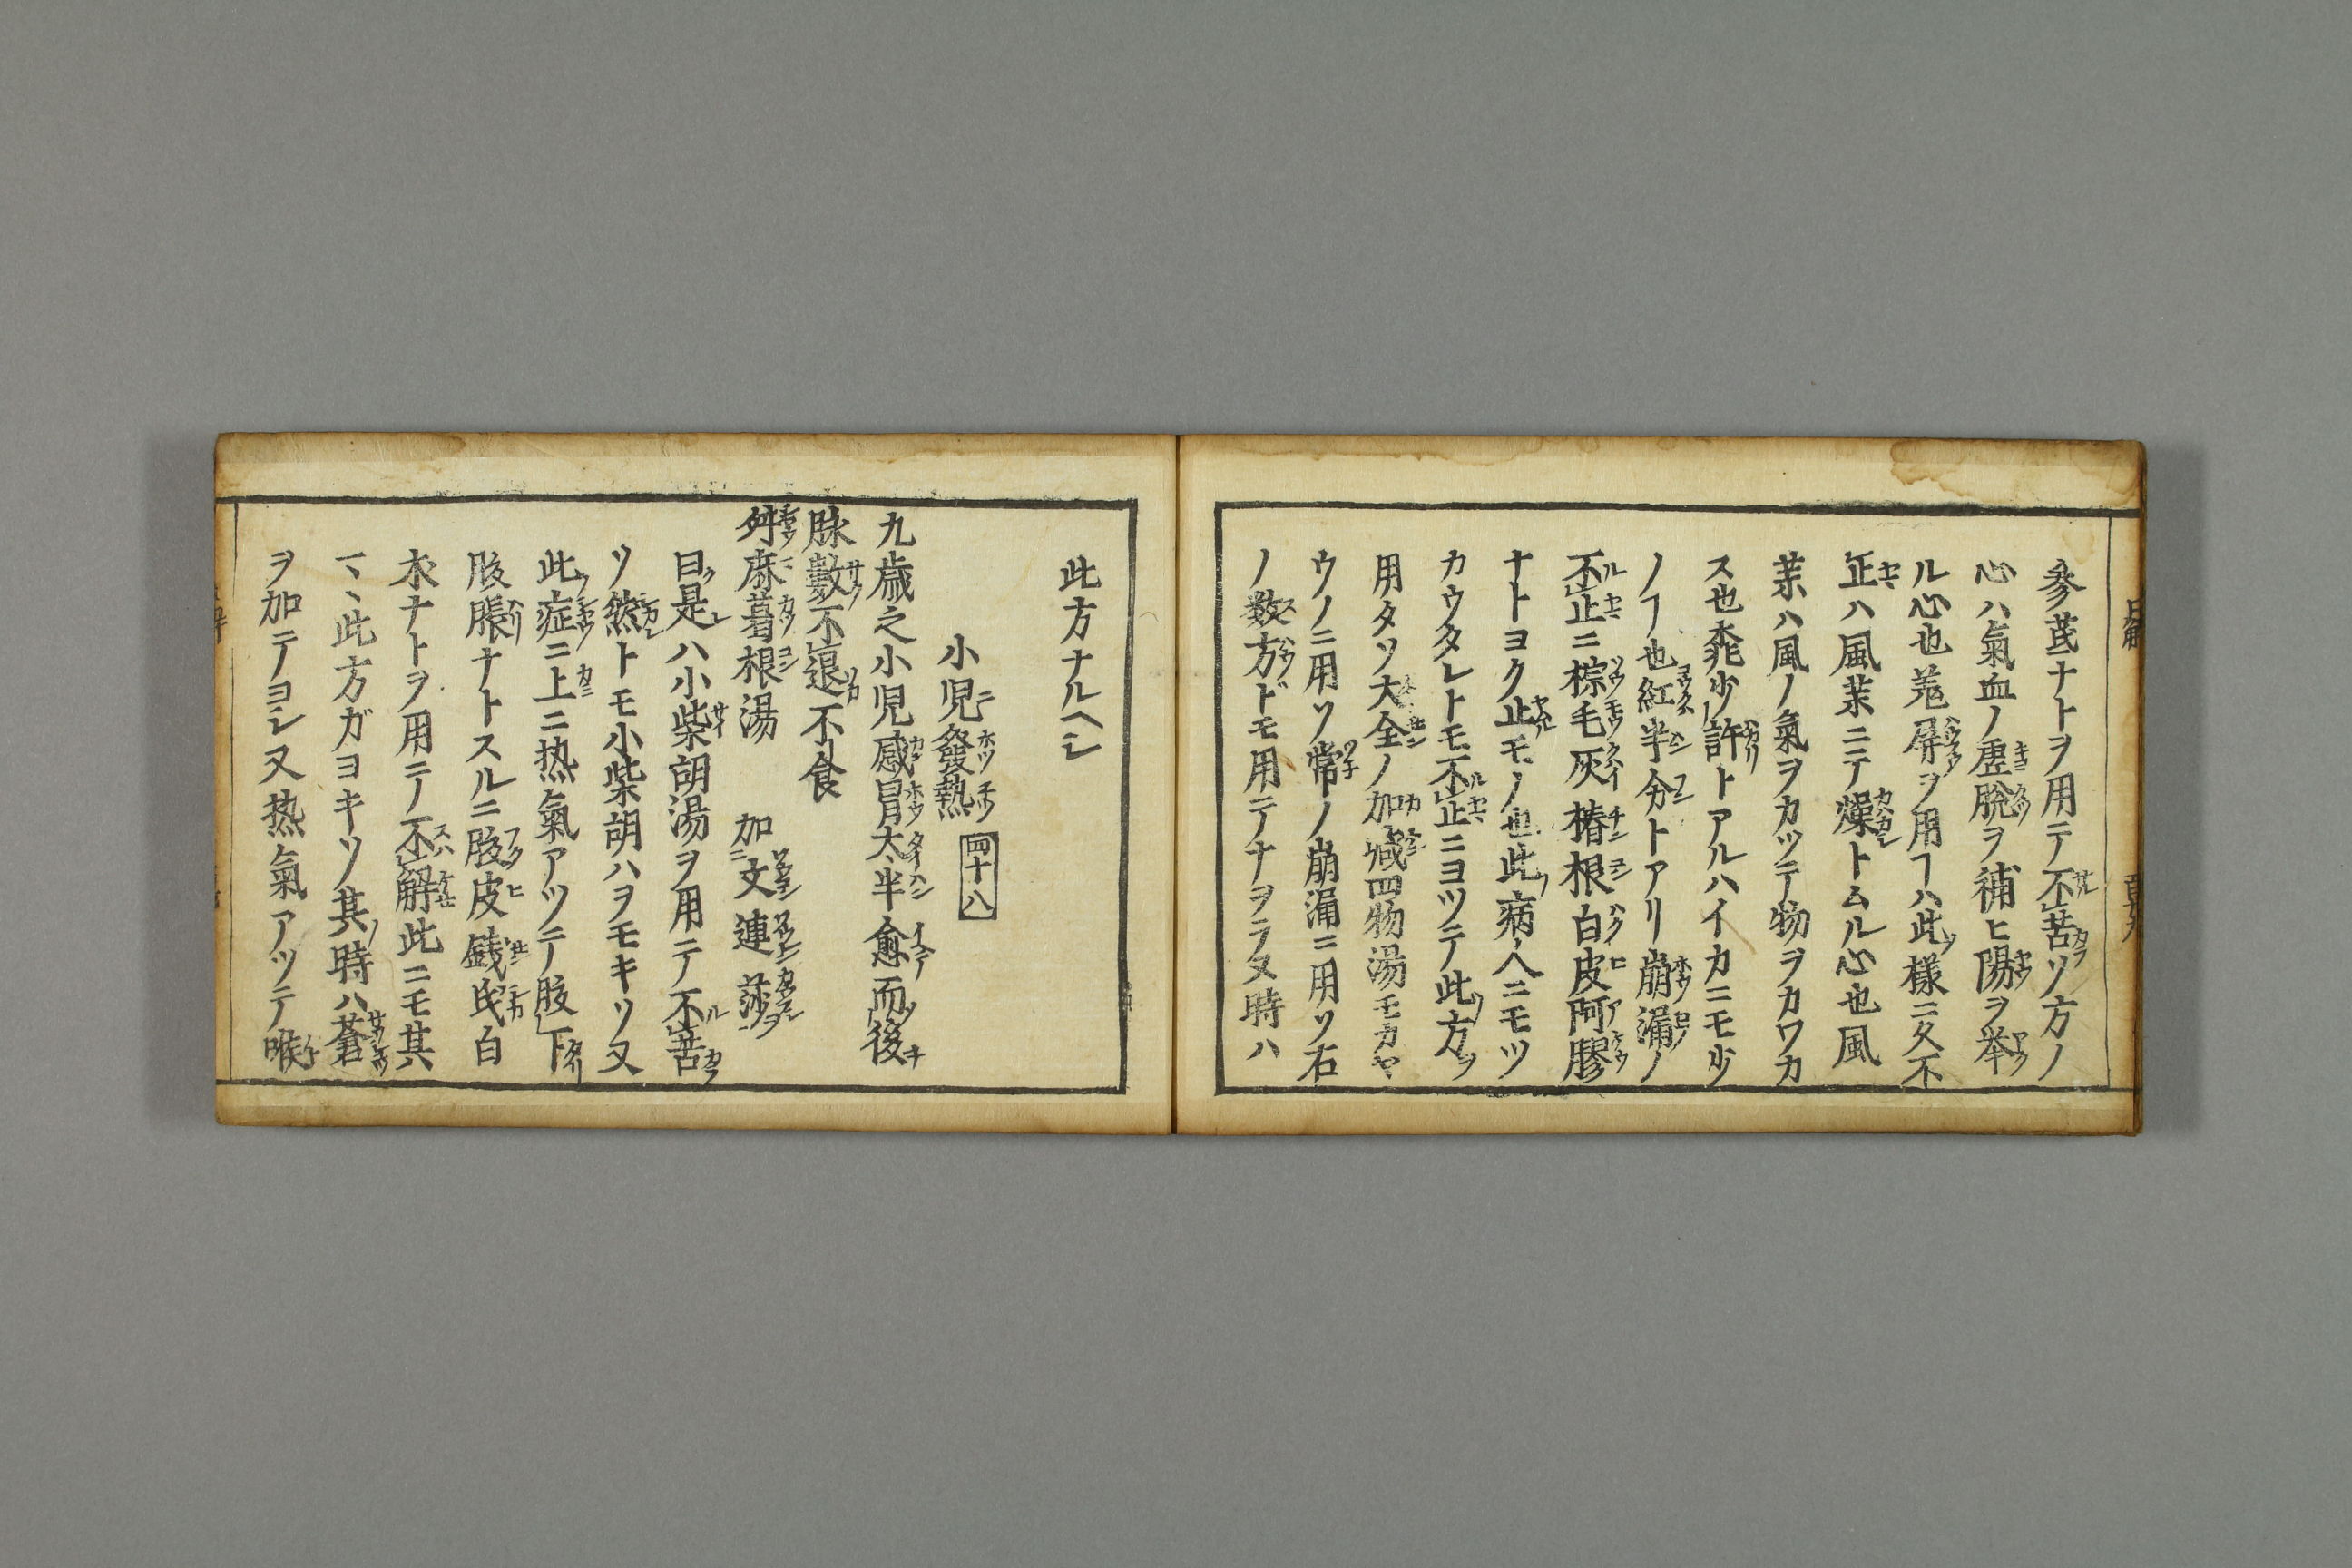 參芪ナトヲ用テ不苦ソ方ノ
心ハ氣血ノ虚脱ヲ補ヒ陽ヲ举
ル心也荒屏ヲ用ヿハ此様ニ久不
正ハ風藥ニテ燥トムル心也風
藥ハ風ノ氣ヲカツテ物ヲカワカ
ス也少許トアルハイカニモ少
ノヿ也紅半分トアリ崩漏ノ
不止ニ棕毛灰椿根白皮阿膠
ナトヨク止モノ也此病人ニモツ
カウタレトモ不止ニヨツテ此方ヲ
用タソ大全ノ加减四物湯モカヤ
ウノニ用ソ常ノ崩漏ニ用ソ右
ノ数方ドモ用テナヲラヌ時ハ
此方ナルヘシ
小児發熱 四十八
九歳之小児感冒太半愈而後
脉數不退不食
舛麻葛根湯 加文連莎
曰是ハ小柴胡湯ヲ用テ不苦
ソ然トモ小柴胡ハヲモキソ又
此症ニ上ニ热氣アツテ腹下
腹脹ナトスルニ腹皮銭氏白
朮ナトヲ用テ不解此ニモ其
マヽ此方ガヨキソ其時ハ蒼
ヲ加テヨシ又热氣アツテ喉